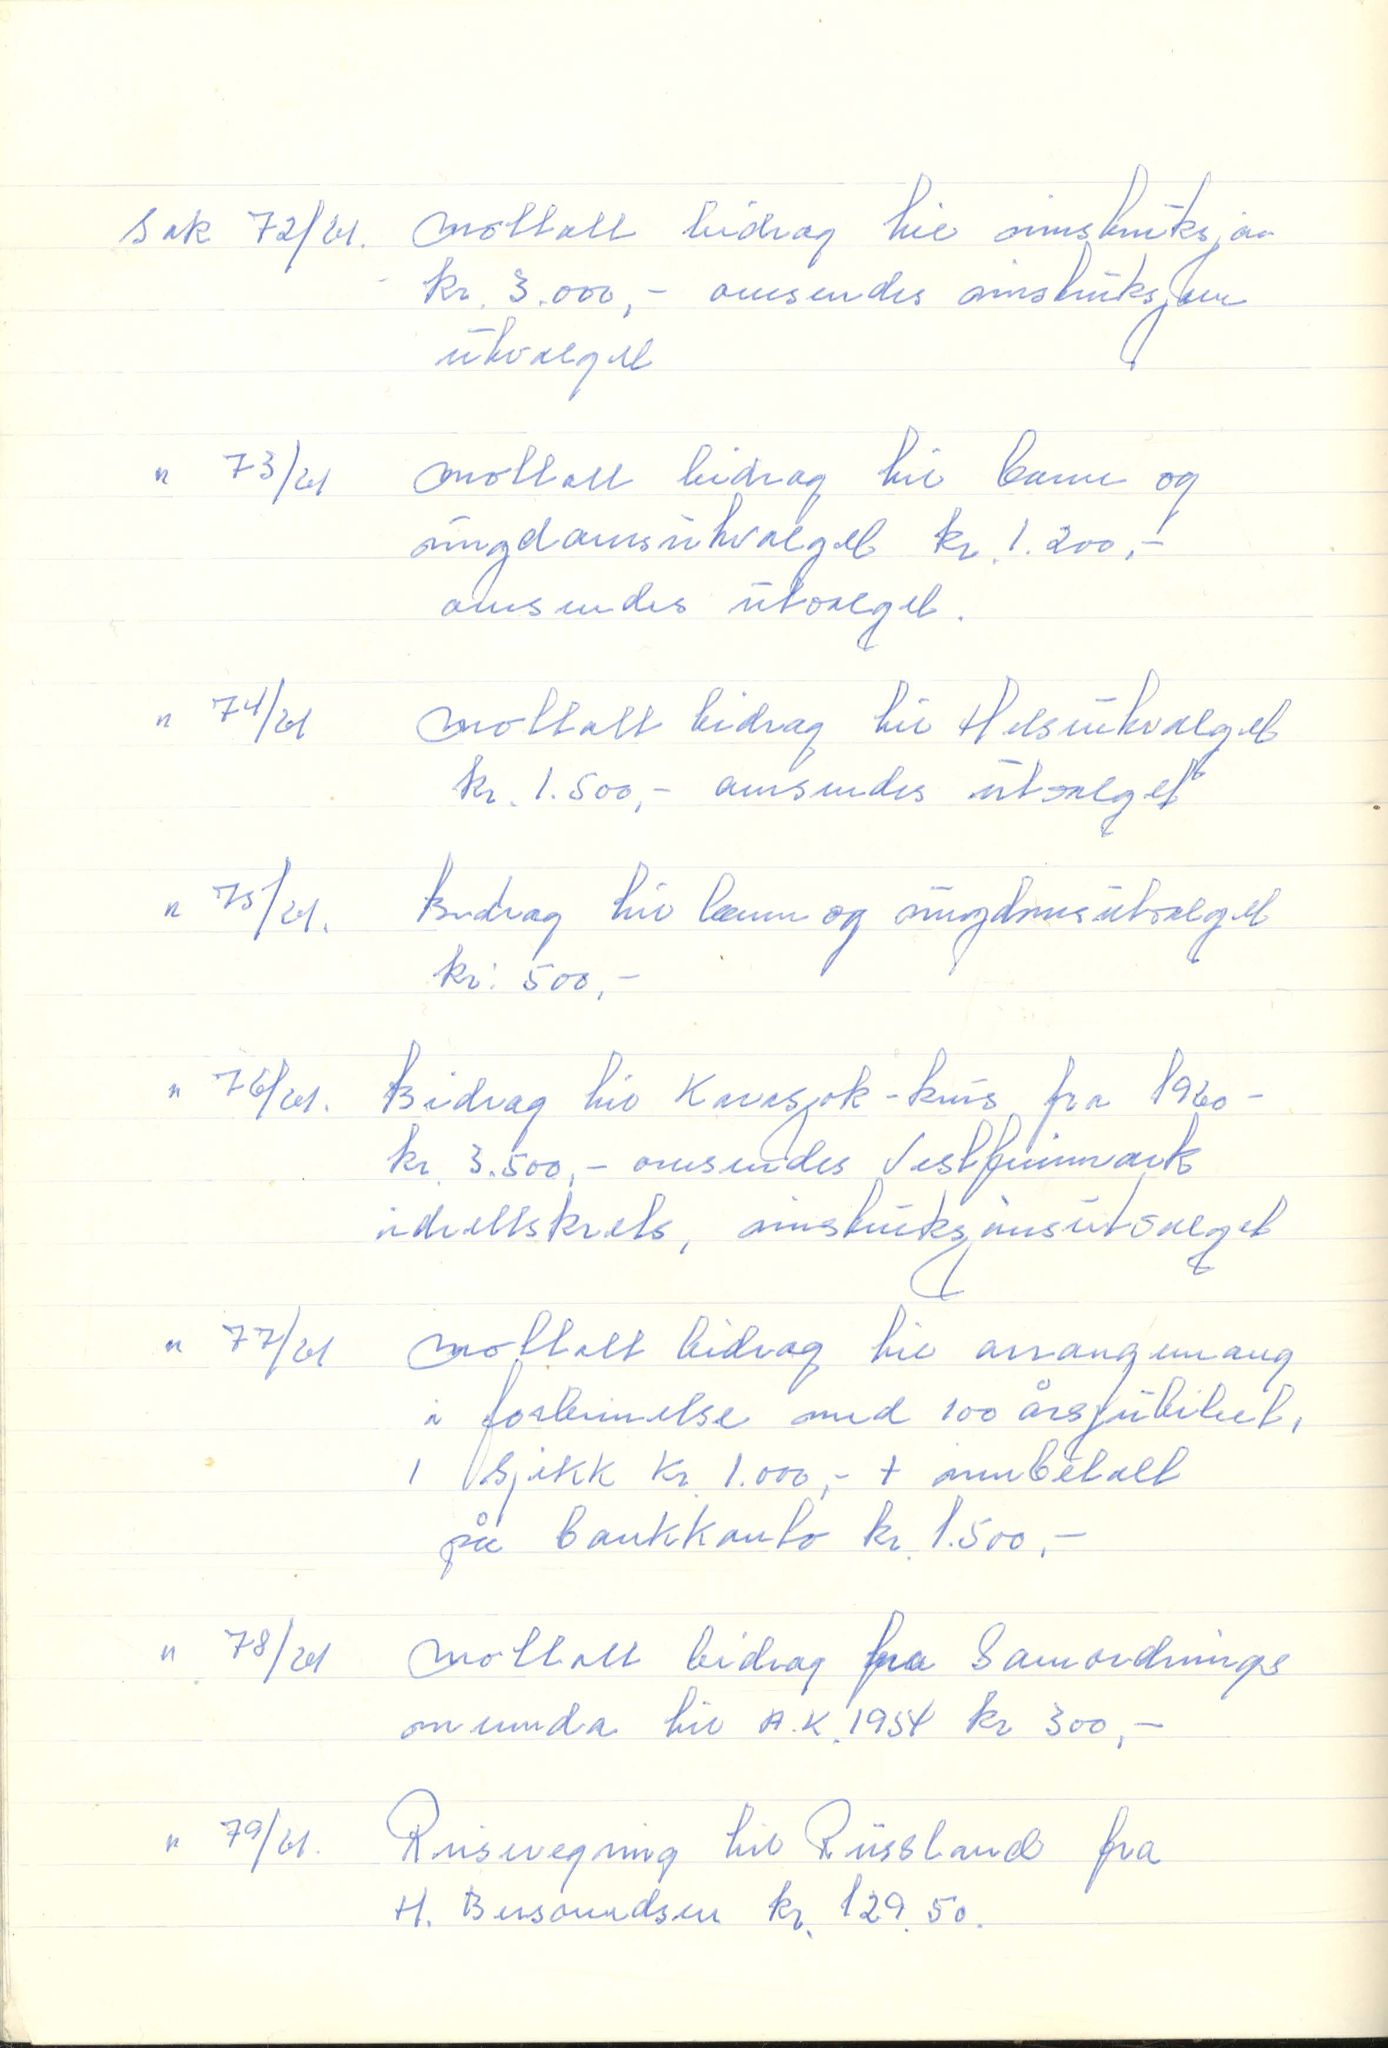 Sak 72/61. Mottatt bidrag til instruksjon
kr. 3.000,- omsendes instruksjons
utvalget
" 73/61 Mottatt bidrag til barne og
ungdomsutvalget kr. 1.200,-
omsendes utvalget.
" 74/61 Mottatt bidrag til Helsutvalget
kr. 1.500,- omsendes utvalget
" 75/61. Bidrag til barne og ungdomsutvalget
kr: 500,-
" 76/61. Bidrag til Karasjok-kurs fra 1960-
kr. 3.500,- omsendes Vestfinnmark
idrettskrets, instruksjonsutvalget
" 77/61 Mottatt bidrag til arrangemang
i forbinnelse med 100 årsjubileet,
1 sjekk kr. 1.000,- + innbetalt
på bankkonto kr. 1.500,-
" 78/61 Mottatt bidrag fra Samordnings
nemnda til A.K. 1954 kr 300,-
" 79/61. Reiseregning til Russland fra
H. kr. 129.50.